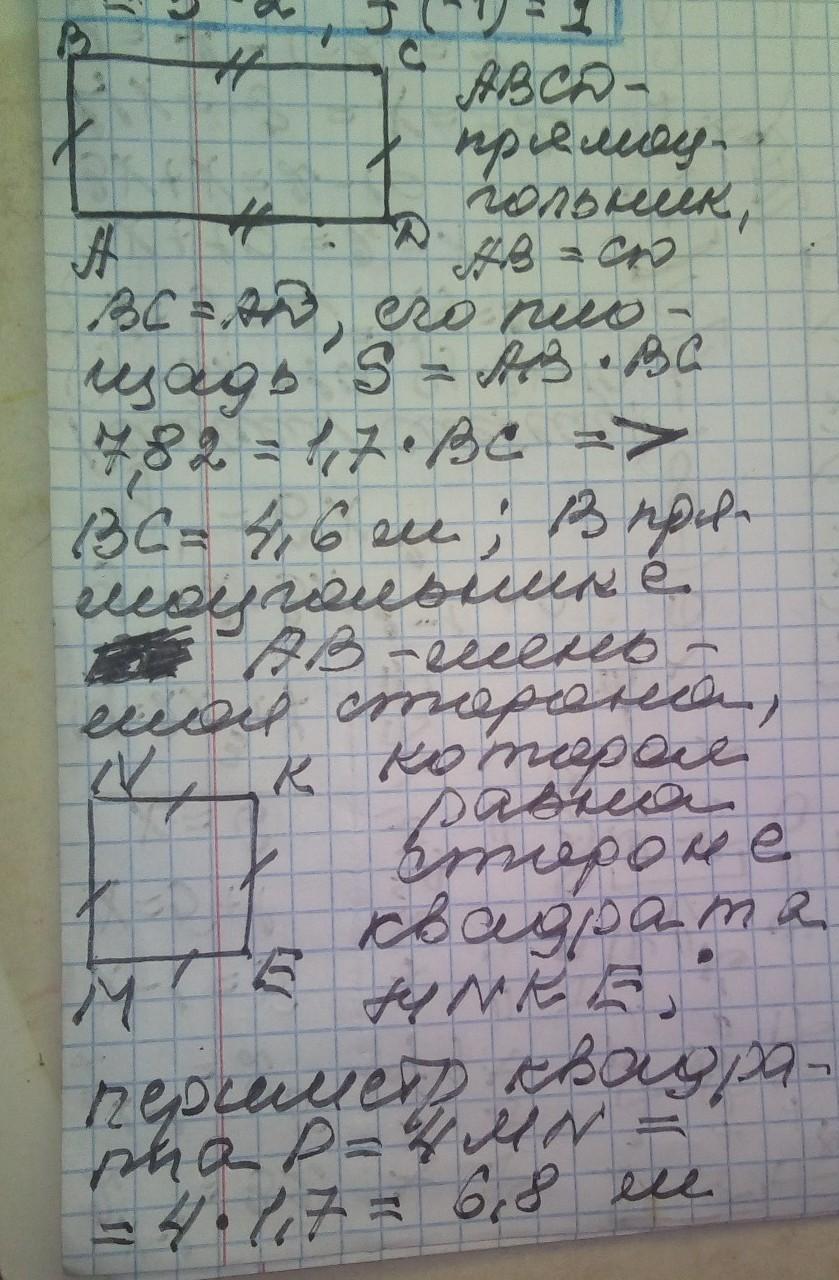 B C
ABCD -
прямоу-
гольник,
A D
AB = CD
BC = AD, его пло -
щадь S = AB · BC
7,82 = 1,7 · BC =>
BC = 4,6 м ; В пря-
моугольнике
AB - мень -
шая сторона,
N K которая
равна
стороне
квадрата
M E MNKE,
периметр квадра-
та P = 4 MN =
= 4 · 1,7 = 6,8 м